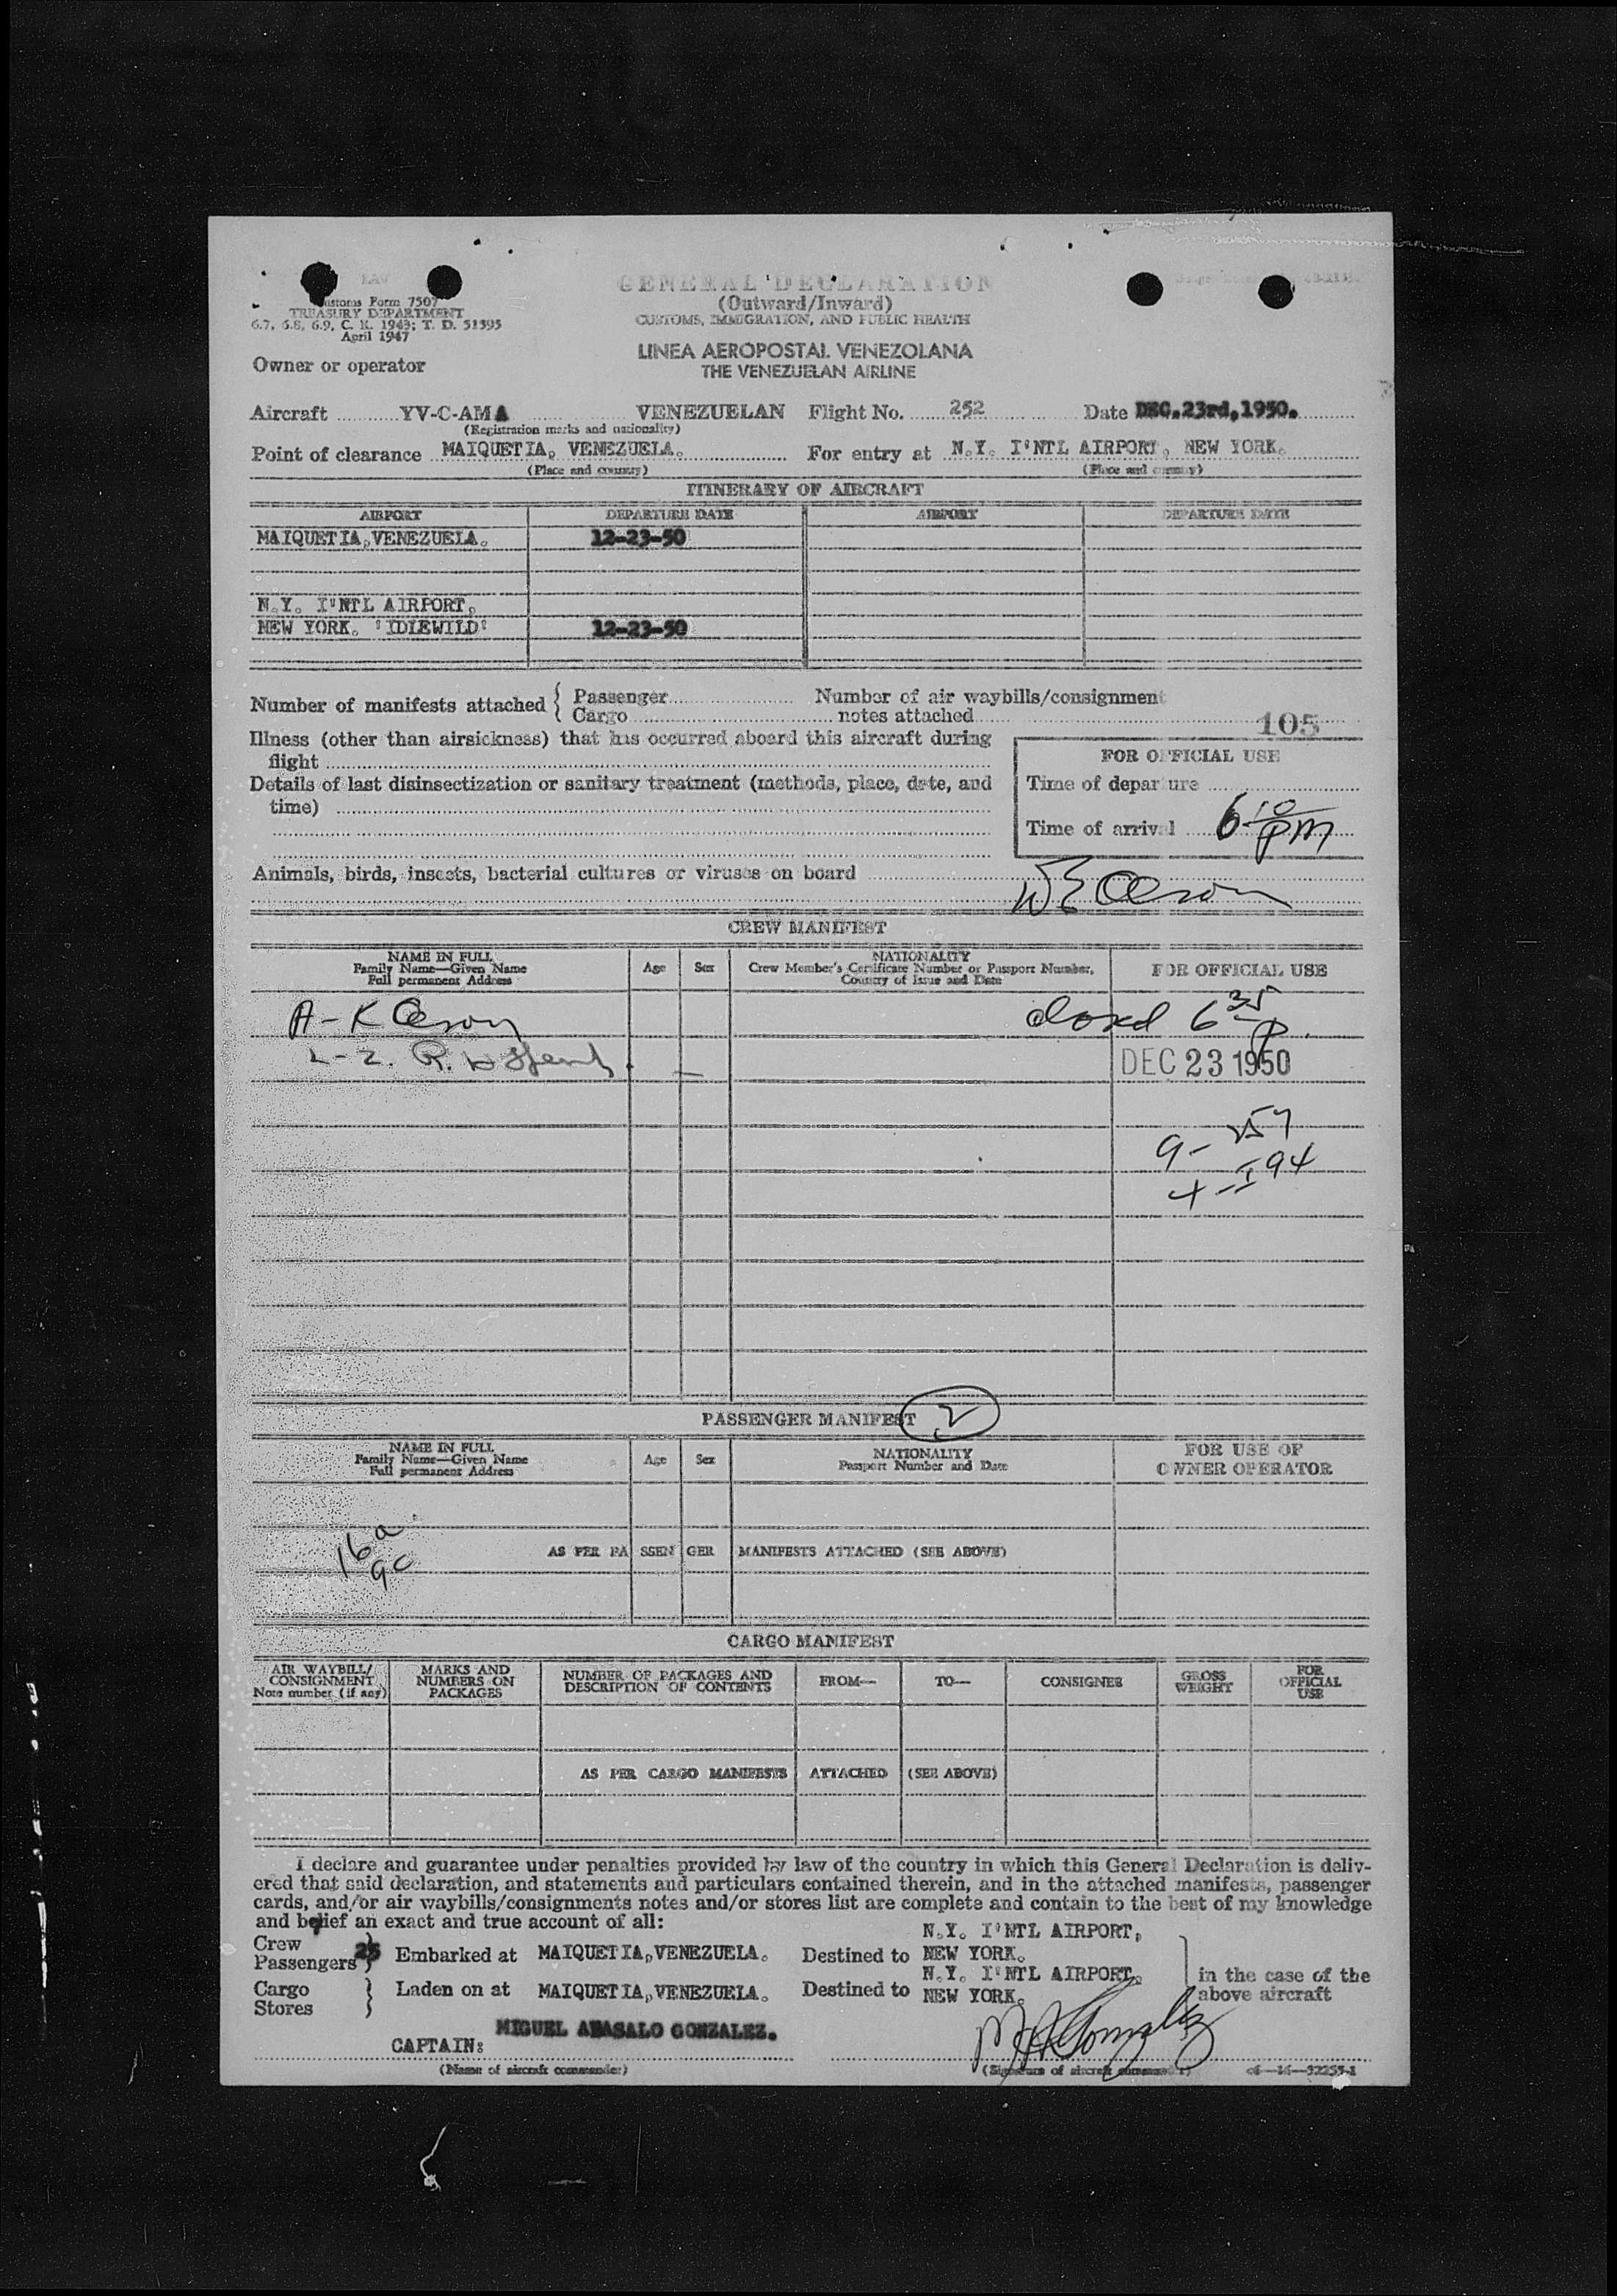 LAV
GENERAL DECLARATION
(Outward/Inward)
CUSTOMS, IMMIGRATION, AND PUBLIC HEALTH
Customs Form 7507
TREASURY DEPARTMENT
6.7, 6.8, 6.9, C. R. 1943; T. D. 51595
April 1947
LINEA AEROPOSTAL VENEZOLANA
THE VENEZUELAN AIRLINE
Owner or operator
Aircraft YV-C-AMA VENEZUELAN Flight No. 252 Date DEC.23rd,1950.
(Registration marks and nationality)
Point of clearance MAIQUETIA, VENEZUELA. For entry at N.Y. I'NTL AIRPORT, NEW YORK.
(Place and country) (Place and country)
ITINERARY OF AIRCRAFT
AIRPORT DEPARTURE DATE AIRPORT DEPARTURE DATE
MAIQUETIA,VENEZUELA. 12-23-50
N.Y. I'NTL AIRPORT,
NEW YORK. 'IDLEWILD' 12-23-50
Number of manifests attached { Passenger Number of air waybills/consignment
Cargo notes attached
105
Illness (other than airsickness) that has occurred aboard this aircraft during
flight
Details of last disinsectization or sanitary treatment (methods, place, date, and
time)
FOR OFFICIAL USE
Time of departure
Time of arrival 6 10 pm
Animals, birds, insects, bacterial cultures or viruses on board
W E Oleson
CREW MANIFEST
NAME IN FULL
Family Name—Given Name
Full permanent Address
Age Sex
NATIONALITY
Crew Member's Certificate Number or Passport Number,
Country of Issue and Date
FOR OFFICIAL USE
A-K Oleson closed 6 35 P.
L-Z. R.
DEC 23 1950
9-
4-
PASSENGER MANIFEST 2
NAME IN FULL
Family Name—Given Name
Full permanent Address
Age Sex
NATIONALITY
Passport Number and Date
FOR USE OF
OWNER OPERATOR
16 a
9 c
AS PER PASSENGER MANIFESTS ATTACHED (SEE ABOVE)
CARGO MANIFEST
AIR WAYBILL/
CONSIGNMENT
Note number (if any)
MARKS AND
NUMBERS ON
PACKAGES
NUMBER OF PACKAGES AND
DESCRIPTION OF CONTENTS
FROM— TO— CONSIGNEE
GROSS
WEIGHT
FOR
OFFICIAL
USE
AS PER CARGO MANIFESTS ATTACHED (SEE ABOVE)
I declare and guarantee under penalties provided by law of the country in which this General Declaration is deliv-
ered that said declaration, and statements and particulars contained therein, and in the attached manifests, passenger
cards, and/or air waybills/consignments notes and/or stores list are complete and contain to the best of my knowledge
and belief an exact and true account of all:
N.Y. I'NTL AIRPORT,
Crew
Passengers 25 } Embarked at MAIQUETIA,VENEZUELA. Destined to NEW YORK.
N.Y. I'NTL AIRPORT,
Cargo
Stores } Laden on at MAIQUETIA,VENEZUELA. Destined to NEW YORK.
in the case of the
above aircraft
MIGUEL ABASALO GONZALEZ.
CAPTAIN:
M A Gonzalez
(Name of aircraft commander) (Signature of aircraft commander) c6—16—52255-1